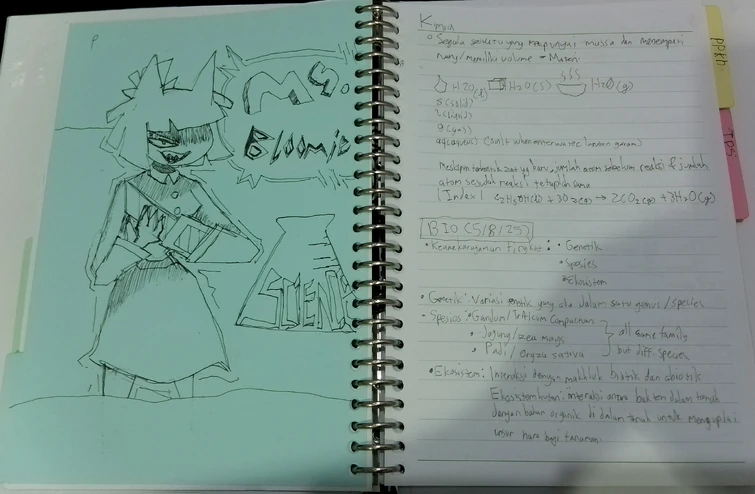 P
Ms.
Bloomie
SCIENCE
Kimia
Segala sesuatu yang mempunyai massa dan menempati
ruang/memiliki volume = Materi
H2O(l) H2O(s) H2O(g)
s(solid)
l(liquid)
g(gas)
aq(aqueus)
meskipun zat yg baru, jumlah atom sebelum reaksi & jumlah
atom sesudah reaksi tetaplah sama
[Index] C2H5OH(l) + 3O2(g) → 2CO2(g) + 3H2O(g)
BIO (5/8/25)
• Keanekaragaman Tingkat: • Genetik
• Spesies
• Ekosistem
• Genetik: Variasi genetik yang ada dalam satu genus/species
• Spesies: • Gandum/Triticum
• Jagung/zea mays
• Padi/oryza sativa
all same family
but diff. species
• Ekosistem: Interaksi dengan makhluk biotik dan abiotik
Ekosistem hutan: interaksi antara bakteri dalam tanah
dengan bahan organik di dalam tanah untuk
unsur hara bagi tanaman
PPKn
IPS